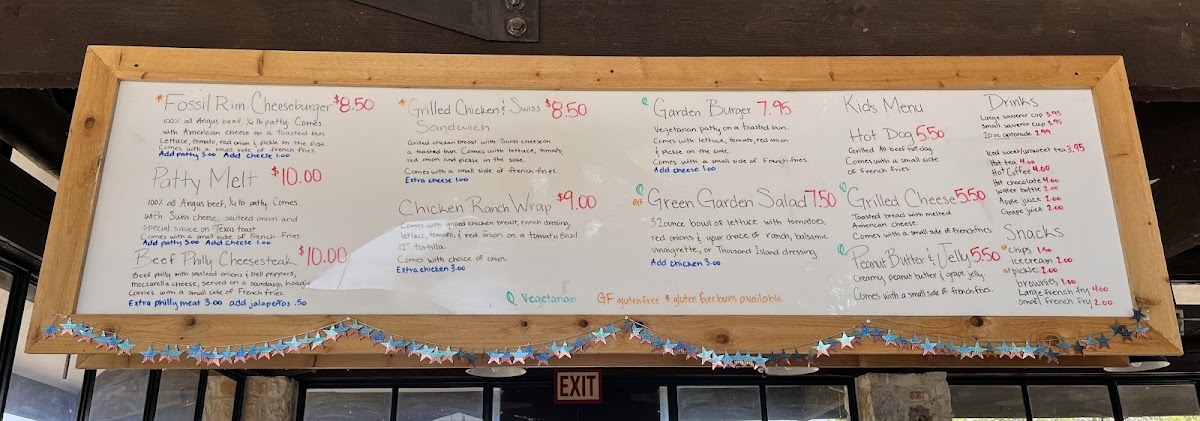 *Fossil Rim Cheeseburger $8.50
100% all Angus beef, 1/4 lb patty. Comes
with American cheese on a toasted bun.
Lettuce, tomato, red onion & pickle on the side.
Comes with a small side of french fries.
Add patty 3.00 Add cheese 1.00
Patty Melt $10.00
100% all Angus beef, 1/4 lb patty. Comes
with Swiss cheese, sauteed onion and
special sauce on Texas toast
Comes with a small side of French Fries.
Add patty 3.00 Add Cheese 1.00
Beef Philly Cheesesteak $10.00
Beef philly with sauteed onions & bell peppers,
mozzarella cheese, served on a sourdough hoagie
Comes with a small side of French fries.
Extra philly meat 3.00 add jalapeños .50
*Grilled Chicken & Swiss $8.50
Sandwich
Grilled chicken breast with Swiss cheese on
a toasted bun. Comes with lettuce, tomato,
red onion and pickle on the side.
Comes with a small side of french fries.
Extra cheese 1.00
Chicken Ranch Wrap $9.00
Comes with grilled chicken breast, ranch dressing,
lettuce, tomato, & red onion on a tomato basil
12" tortilla.
Comes with choice of chips.
Extra chicken 3.00
Garden Burger 7.95
Vegetarian patty on a toasted bun.
Comes with lettuce, tomato, red onion
& pickle on the side.
Comes with a small side of French fries.
Add cheese 1.00
GF Green Garden Salad 7.50
32 ounce bowl of lettuce with tomatoes,
red onions & your choice of ranch, balsamic
vinaigrette, or Thousand Island dressing.
Add chicken 3.00
Vegetarian GF gluten free * gluten free buns available.
Kids Menu
Hot Dog 5.50
Grilled All beef hot dog
Comes with a small side
of French fries.
Grilled Cheese 5.50
Toasted bread with melted
American cheese.
Comes with a small side of french fries
Peanut Butter & Jelly 5.50
Creamy peanut butter & grape jelly.
Comes with a small side of french fries.
Drinks
Large souvenir cup 3.95
Small souvenir cup 2.95
20 oz gatorade 2.99
Iced sweet/unsweet tea 3.95
Hot tea 4.00
Hot Coffee 4.00
Hot chocolate 4.00
water bottle 2.00
Apple juice 2.00
Grape juice 2.00
Snacks
GF chips 1.50
ice cream 2.00
GF pickle 2.00
brownies 1.00
Large french fry 4.00
small french fry 2.00
EXIT